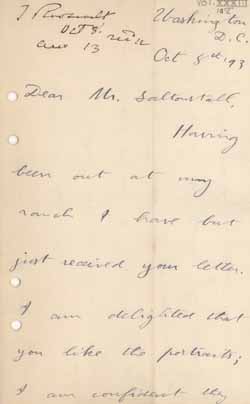 T Roosevelt
Oct 8.
Ans 13
VOL. XXXIII
Washington
D.C.
Oct 8th 93
Dear Mr. Saltonstall,
Having
been out at my
ranch I have but
just received your letter.
I am delighted that
you like the portraits;
I am confident they